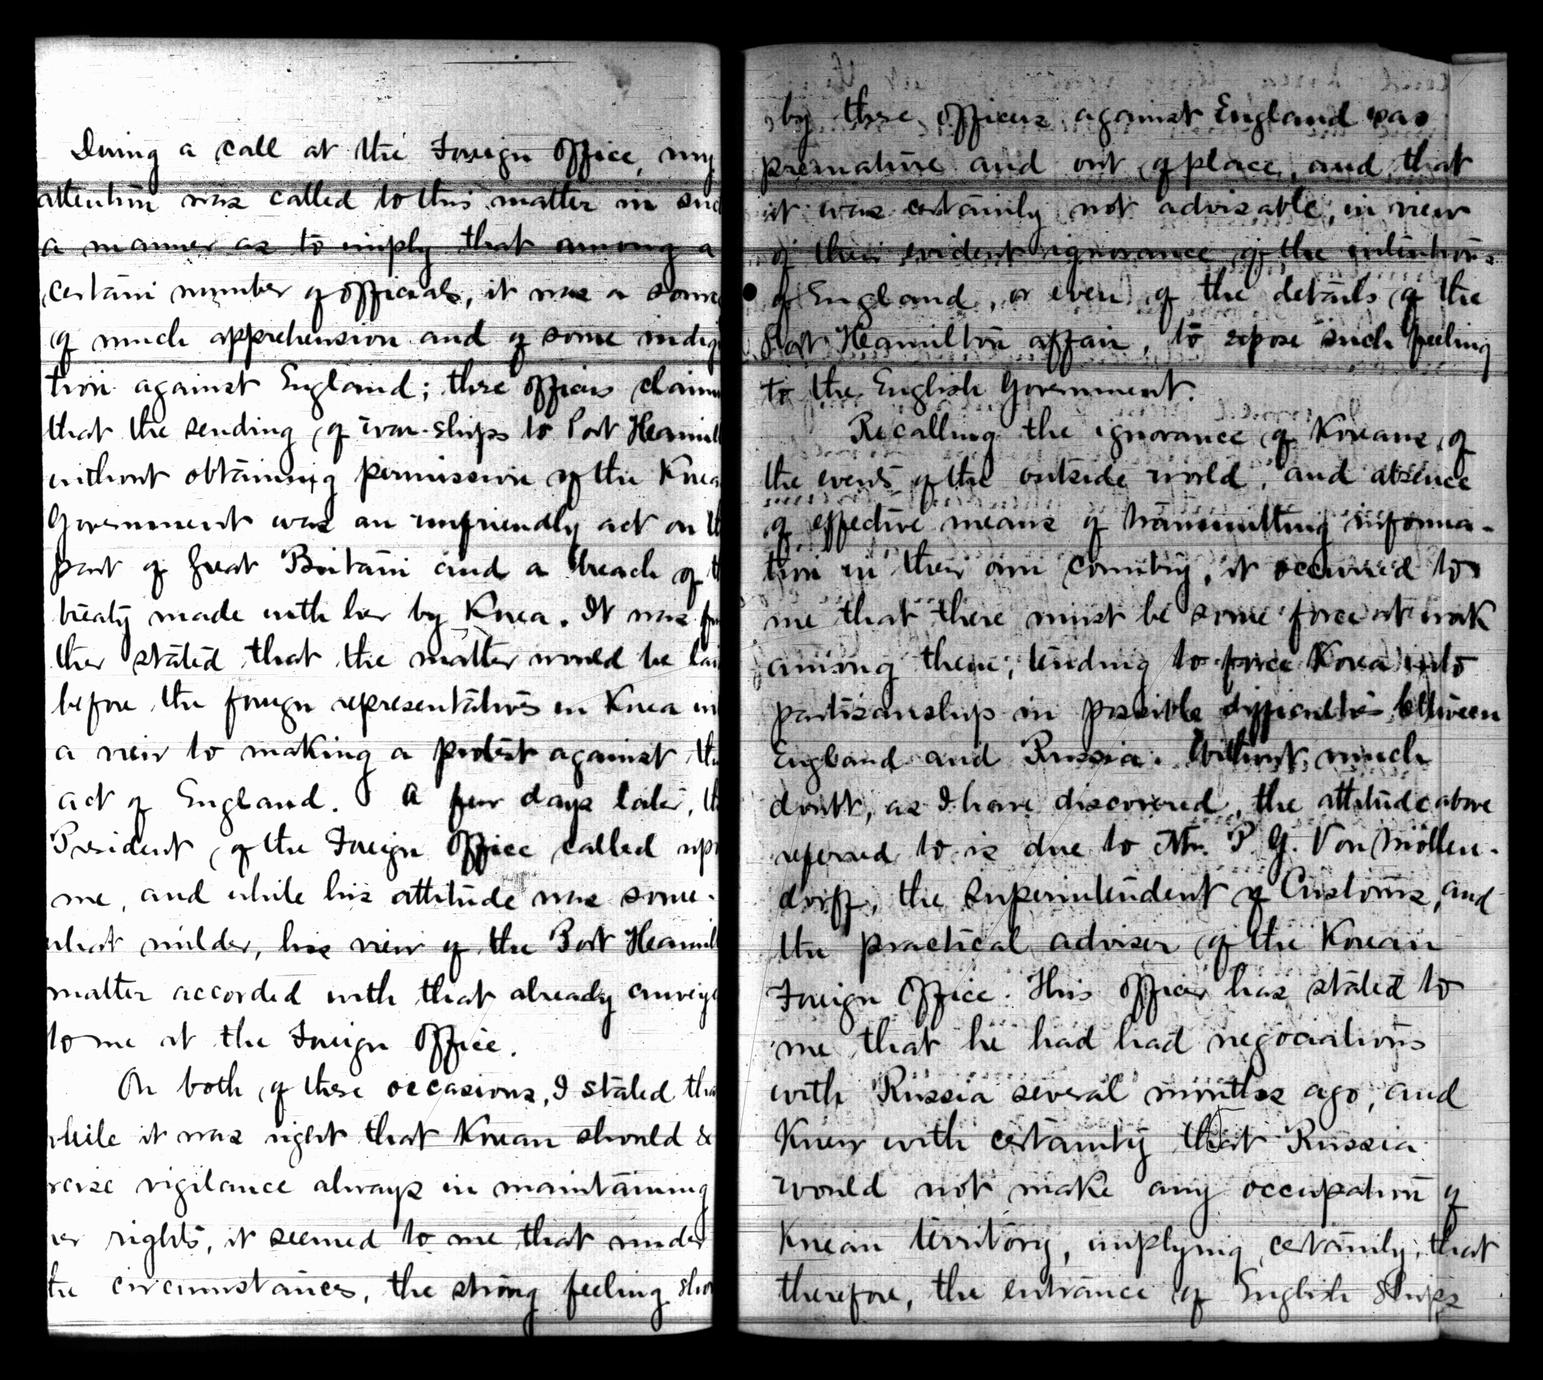 During a call at the Foreign Office, my
attention was called to this matter in suc
a manner as to imply that among a
certain number of officials, it was a sour
of much apprehension and of some indig
tion against England; these officers claim
that the sending of war-ships to Port Hamil
without obtaining permission of the Korea
Government was an unfriendly act on th
part of Great Britain and a breach of t
treaty made with her by Korea. It was fu
ther stated that the matter would be lai
before the foreign representatives in Korea wi
a view to making a protest against th
act of England. A few days later, th
President of the Foreign Office called upo
me, and while his attitude was some-
what milder, his view of the Port Hamil
matter accorded with that already conveye
to me at the Foreign Office.
On both of these occasions, I stated tha
while it was right that Korean should ex
ercise vigilance always in maintaining
her rights, it seemed to me that under
the circumstances, the strong feeling show
by these officers against England was
premature and out of place, and that
it was certainly not advisable, in view
of their evident ignorance of the intentions
of England, or even of the details of the
Port Hamilton affair, to expose such feeling
to the English Government.
Recalling the ignorance of Koreans of
the events of the outside world, and absence
of effective means of transmitting informa-
tion in their own country, it occurred to
me that there must be some force at work
among them, tending to force Korea into
partisanship in possible difficulties between
England and Russia. Without much
doubt, as I have discovered, the attitude above
referred to is due to Mr. P. G. Von Möllen-
dorff, the Superintendent of Customs, and
the practical adviser of the Korean
Foreign Office. This officer has stated to
me that he had had negociations
with Russia several months ago, and
Knew with certainty that Russia
would not make any occupation of
Korean territory, implying certainly, that
therefore, the entrance of English Ships